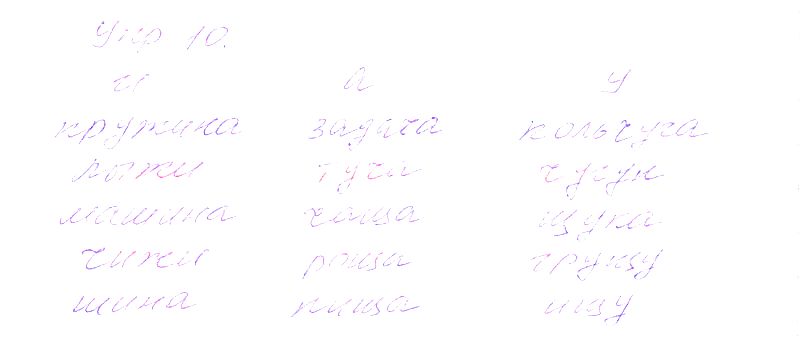 Упр 10.
и а у
пружина задача кольчуга
лыжи туча чугун
машина чаща щука
чижи роща грущу
шина пища ищу